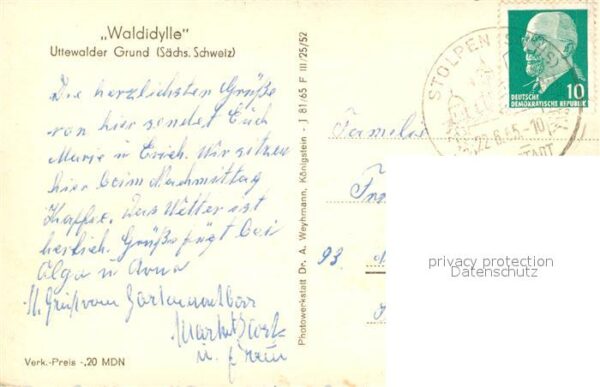 „Waldidylle"
Uttewalder Grund (Sächs. Schweiz)
Die herzlichsten Grüße
von hier sendet Euch
Marie u. Erich. Wir sitzen
hier beim Nachmittag
Kaffee. Das Wetter ist
herlich. Grüße fügt bei
Olga u. Anna
Gruß vom
u. Frau
Verk.-Preis -,20 MDN
Photowerkstatt Dr. A. Weyhmann, Königstein - J 81/65 F III/25/52
STOLPEN
22.6.65.-10
DEUTSCHE
DEMOKRATISCHE REPUBLIK
10
Familie
93
privacy protection
Datenschutz